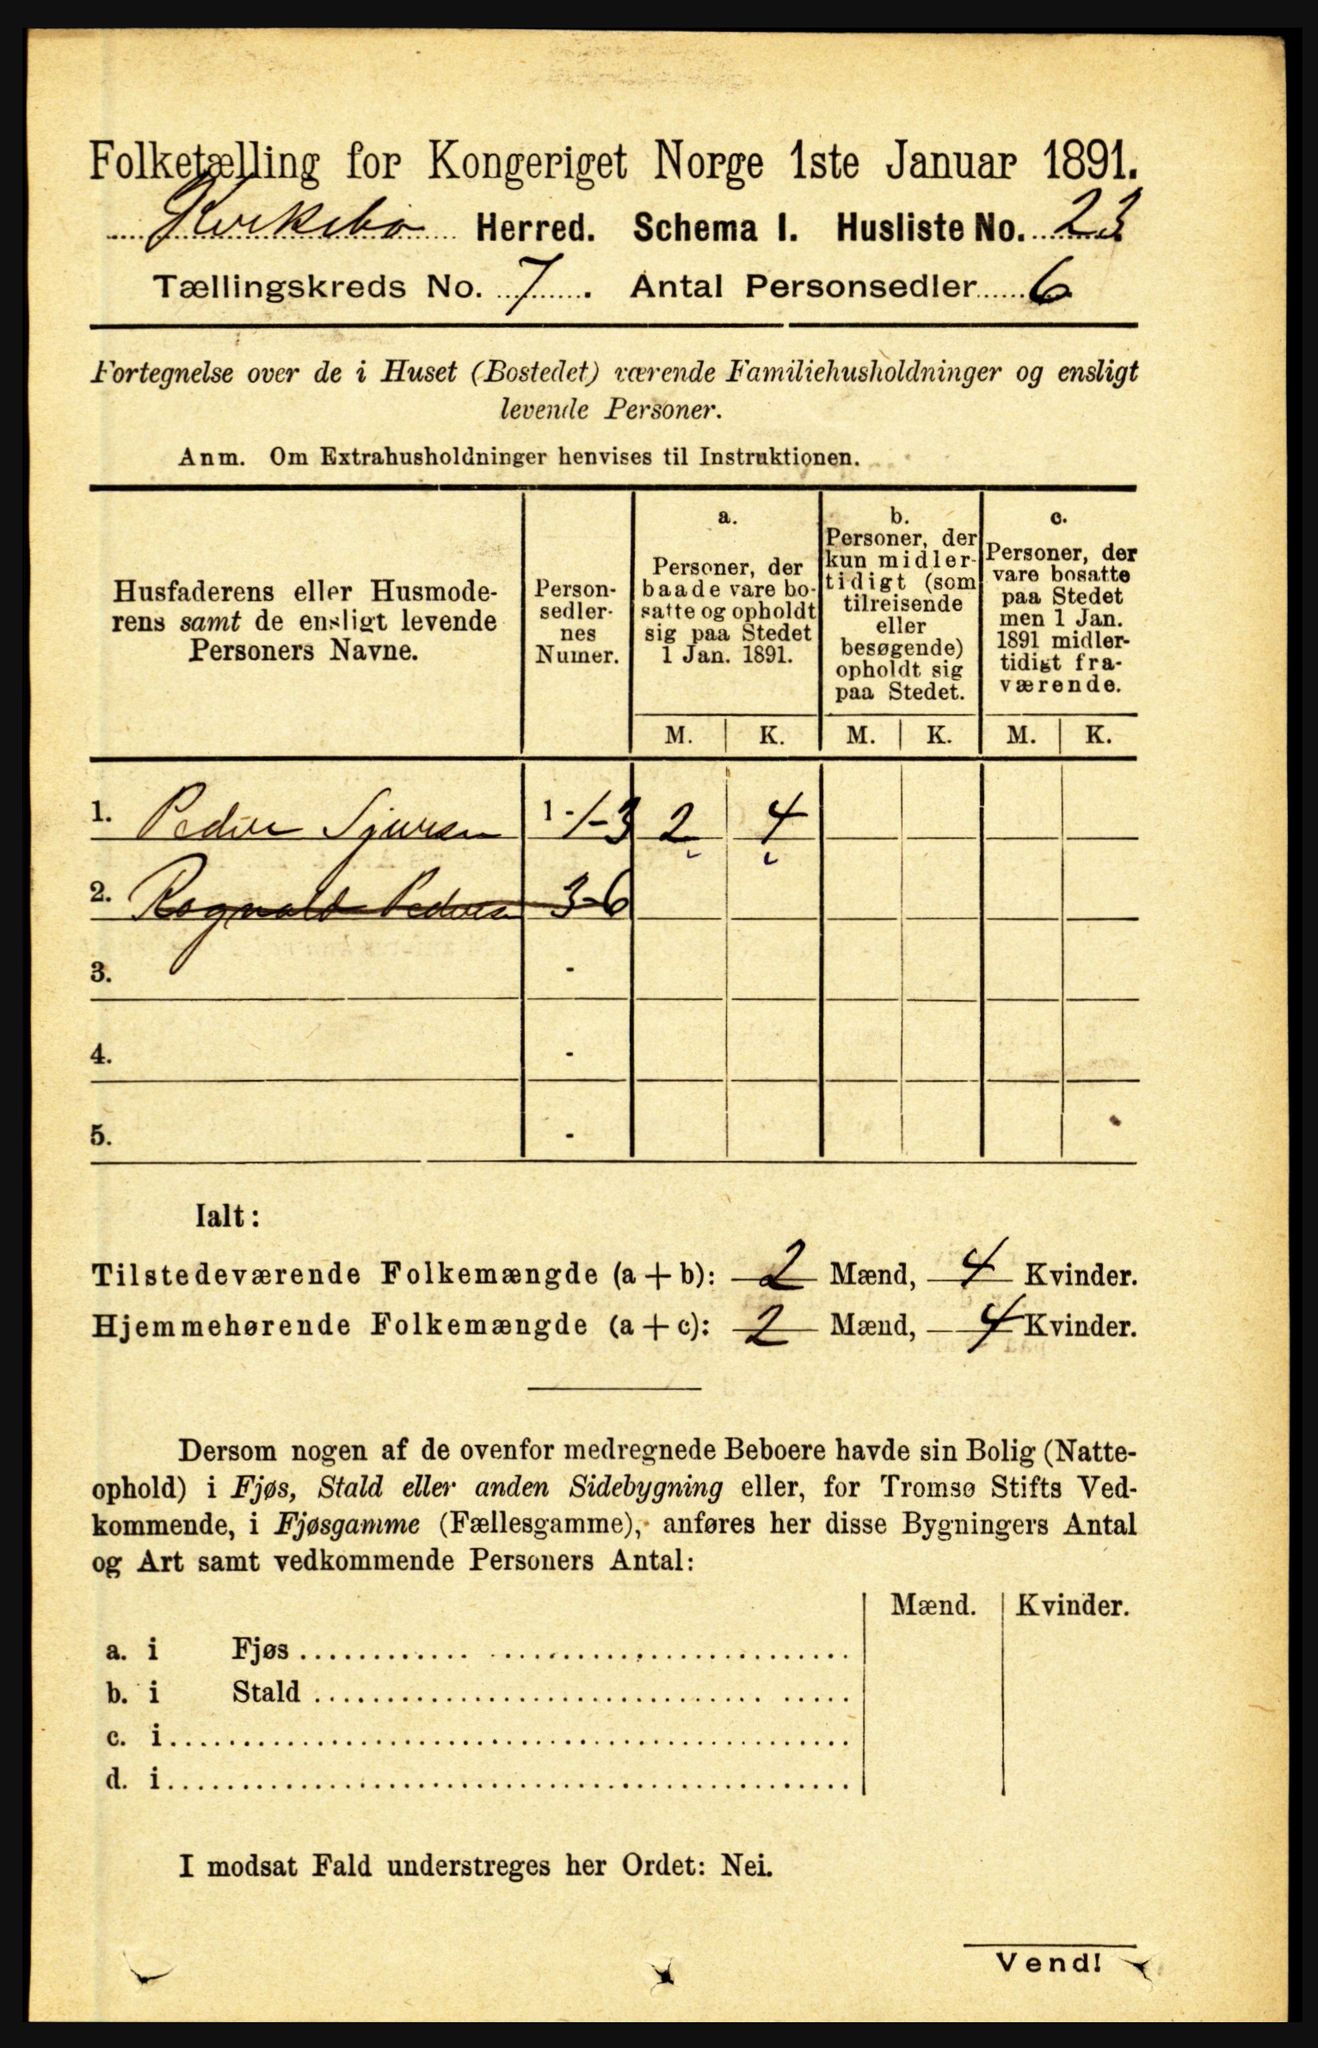 Folketælling for Kongeriget Norge 1ste Januar 1891.
Kirkebø Herred. Schema I. Husliste No. 23
Tællingskreds No. 7. Antal Personsedler 6
Fortegnelse over de i Huset (Bostedet) værende Familiehusholdninger og ensligt
levende Personer.
Anm. Om Extrahusholdninger henvises til Instruktionen.
Husfaderens eller Husmode-
rens samt de ensligt levende
Personers Navne.
Person-
sedler-
nes
Numer.
a.
Personer, der
baade vare bo-
satte og opholdt
sig paa Stedet
1 Jan. 1891.
b.
Personer, der
kun midler-
tidigt (som
tilreisende
eller
besøgende)
opholdt sig
paa Stedet.
c.
Personer, der
vare bosatte
paa Stedet
men 1 Jan.
1891 midler-
tidigt fra-
værende.
M. K. M. K. M. K.
1. Peder Sjursen 1 - 1-3 2 4
2. Ragnald Pedersen 3-6
3. -
4. -
5. -
Ialt:
Tilstedeværende Folkemængde (a + b): 2 Mænd, 4 Kvinder.
Hjemmehørende Folkemængde (a + c): 2 Mænd, 4 Kvinder.
Dersom nogen af de ovenfor medregnede Beboere havde sin Bolig (Natte-
ophold) i Fjøs, Stald eller anden Sidebygning eller, for Tromsø Stifts Ved-
kommende, i Fjøsgamme (Fællesgamme), anføres her disse Bygningers Antal
og Art samt vedkommende Personers Antal:
Mænd. Kvinder.
a. i Fjøs
b. i Stald
c. i
d. i
I modsat Fald understreges her Ordet: Nei.
Vend!